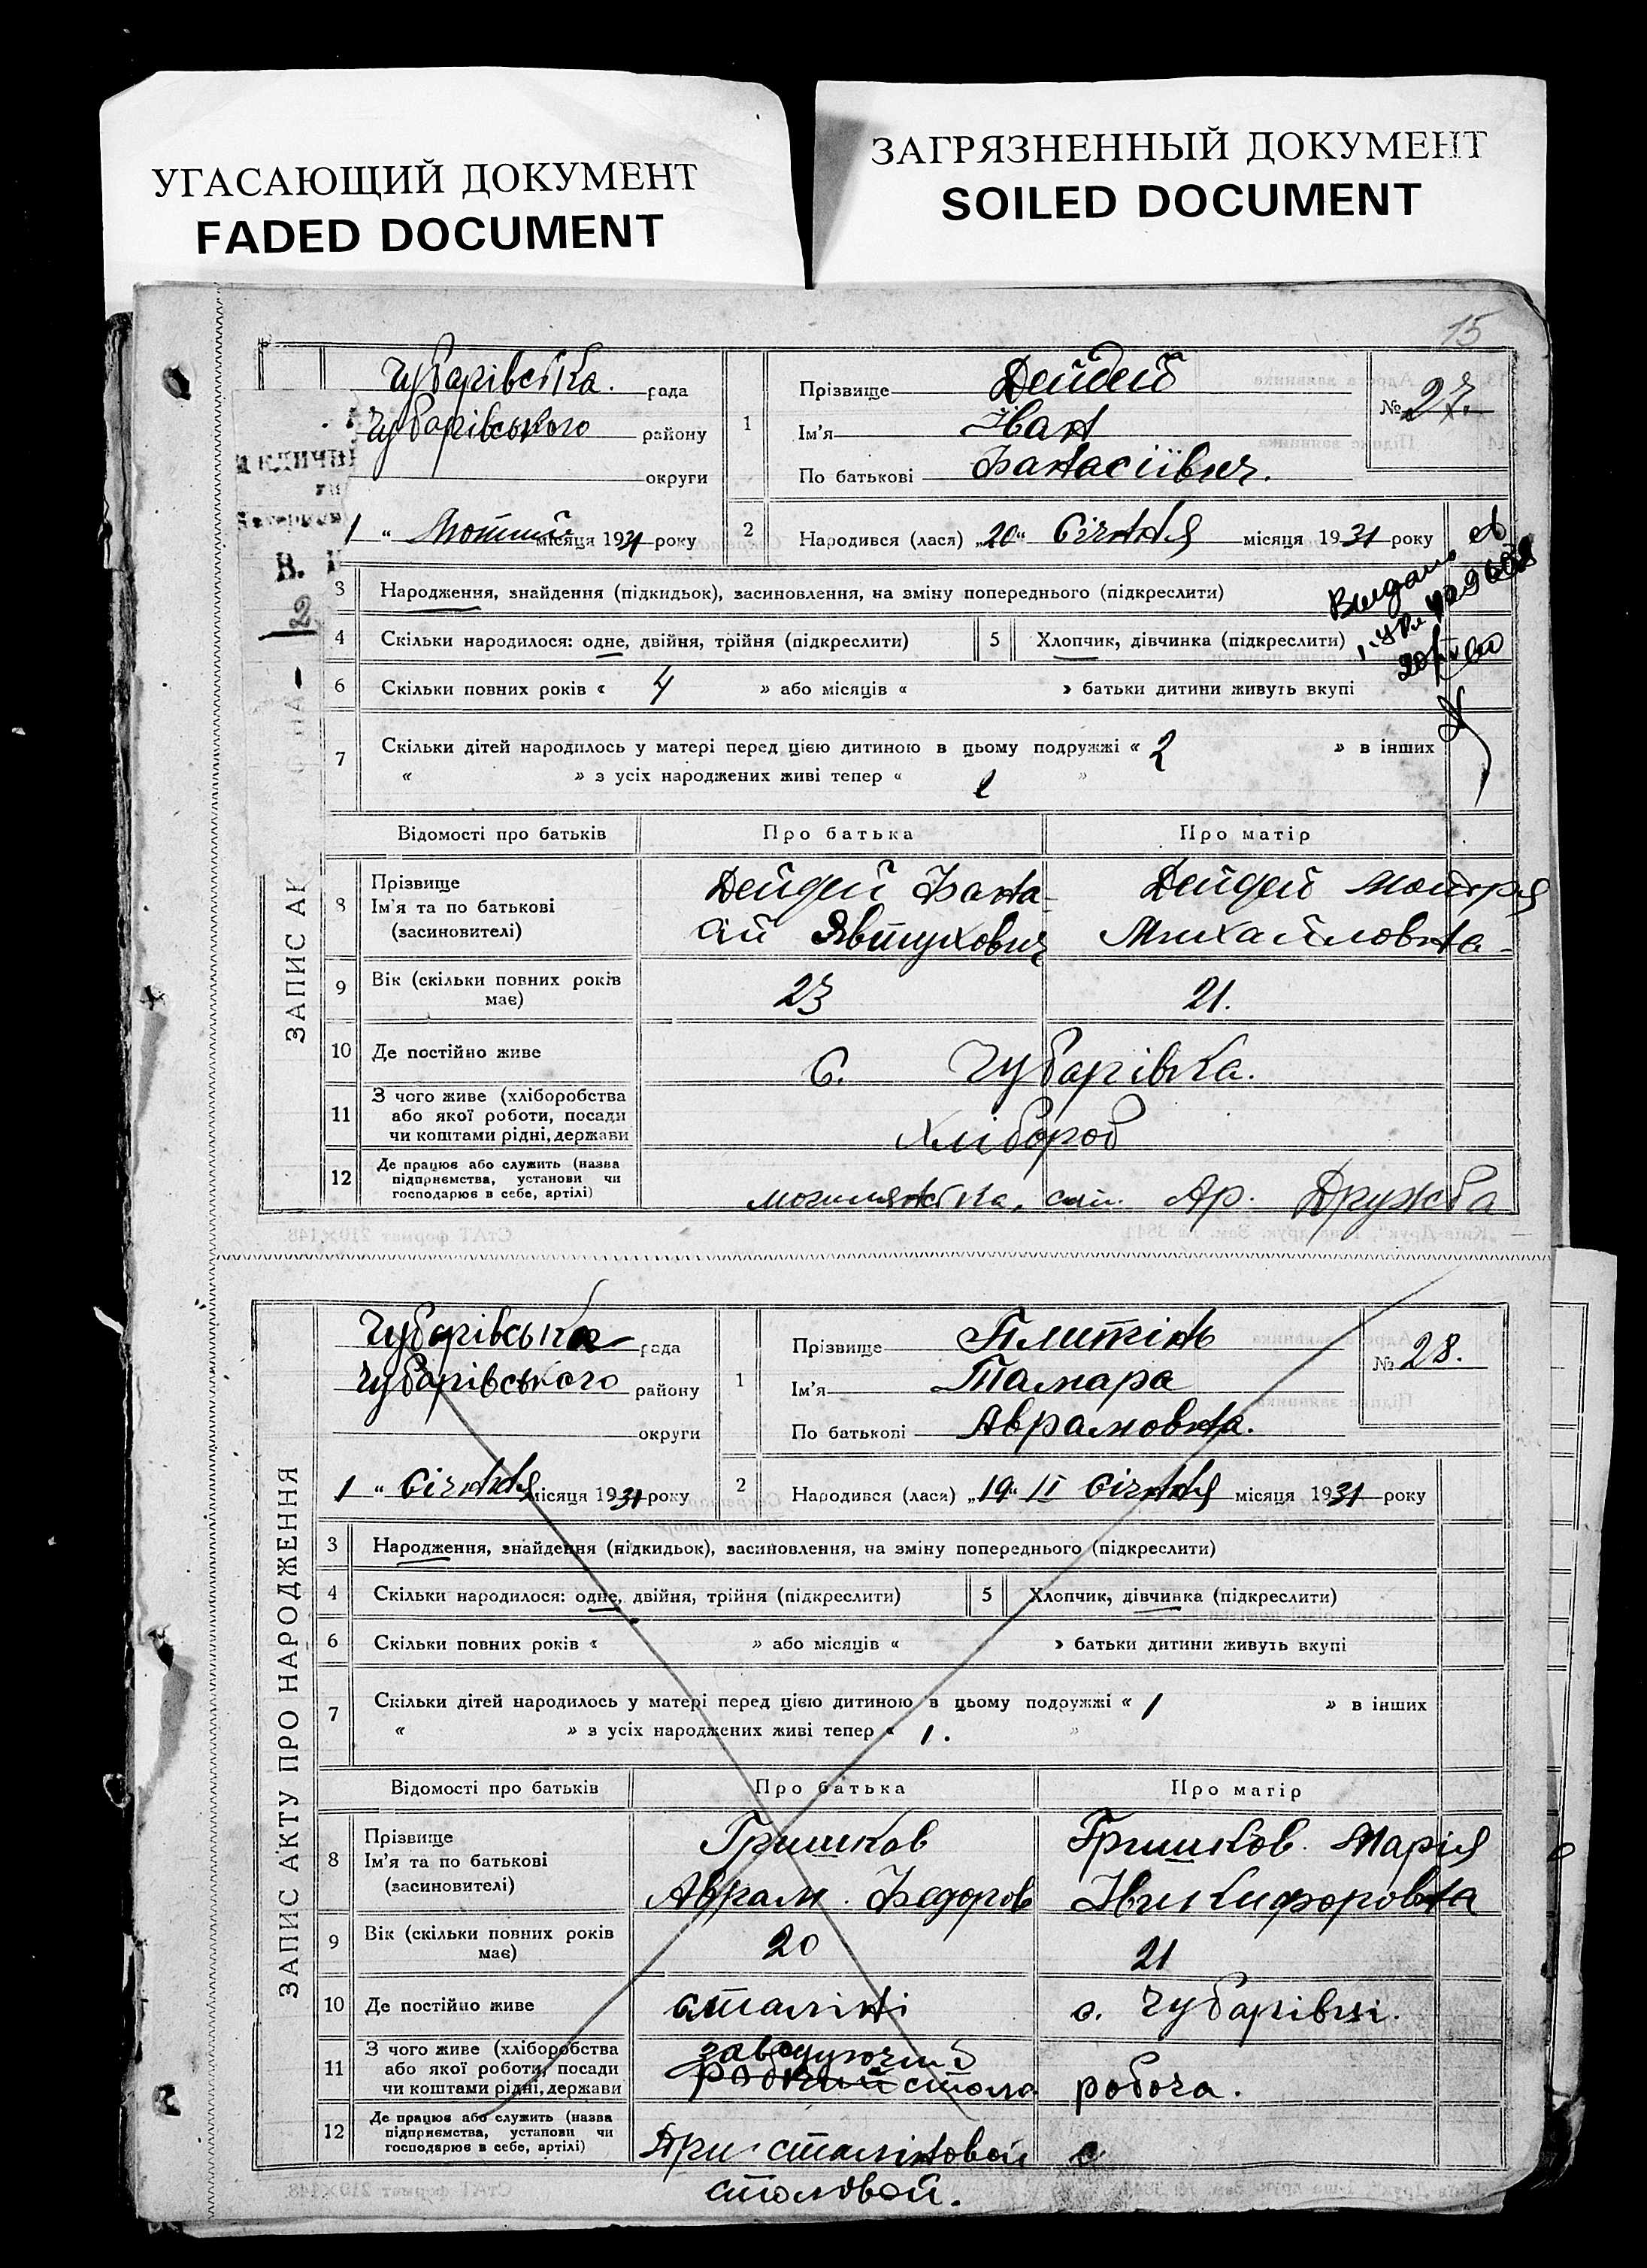 УГАСАЮЩИЙ ДОКУМЕНТ
FADED DOCUMENT
ЗАГРЯЗНЕННЫЙ ДОКУМЕНТ
SOILED DOCUMENT
15
Чубарівська. рада
Чубарівського району
округи
1 " місяця 1931 року
1 Прізвище Дейдей
Ім'я Іван
По батькові Банасіївич.
№ 27.
2 Народився (лася) „20" Січня місяця 1931 року
Видано
3 Народження, знайдення (підкидьок), засиновлення, на зміну попереднього (підкреслити)
4 Скільки народилося: одне, двійня, трійня (підкреслити)
5 Хлопчик, дівчинка (підкреслити)
6 Скільки повних років « 4 » або місяців « » батьки дитини живуть вкупі
7 Скільки дітей народилось у матері перед цією дитиною в цьому подружжі « 2 » в інших
« » з усіх народжених живі тепер « »
Відомості про батьків Про батька Про матір
ЗАПИС АК
8 Прізвище
Ім'я та по батькові
(засиновителі)
Дейдей Бана-
сій Явтухович
Дейдей
Михайловна
9 Вік (скільки повних років має) 23 21.
10 Де постійно живе с. Чубарівка.
11 З чого живе (хліборобства
або якої роботи, посади
чи коштами рідні, держави
Хлібороб
12 Де працює або служить (назва
підприємства, установи чи
господарює в себе, артілі)
Ар. Дружба
Чубарівська рада
Чубарівського району
округи
1 " Січня місяця 1931 року
1 Прізвище Плитінь
Ім'я Тамара
По батькові Аврамовна.
№ 28.
2 Народився (лася) „19" II Січня місяця 1931 року
3 Народження, знайдення (підкидьок), засиновлення, на зміну попереднього (підкреслити)
4 Скільки народилося: одне, двійня, трійня (підкреслити)
5 Хлопчик, дівчинка (підкреслити)
6 Скільки повних років « » або місяців « » батьки дитини живуть вкупі
7 Скільки дітей народилось у матері перед цією дитиною в цьому подружжі « 1 » в інших
« » з усіх народжених живі тепер « 1. »
Відомості про батьків Про батька Про матір
ЗАПИС АКТУ ПРО НАРОДЖЕННЯ
8 Прізвище
Ім'я та по батькові
(засиновителі)
Гришков
Аврам. Бедоров
Гришков. Марія
Никифоровна
9 Вік (скільки повних років має) 20 21
10 Де постійно живе сталіні с. Чубарівці.
11 З чого живе (хліборобства
або якої роботи, посади
чи коштами рідні, держави
завидуючий
стола
робоча.
12 Де працює або служить (назва
підприємства, установи чи
господарює в себе, артілі)
При сталіновой
столовой.